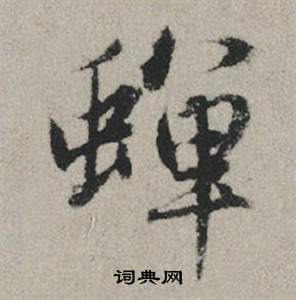 蟬
词典网